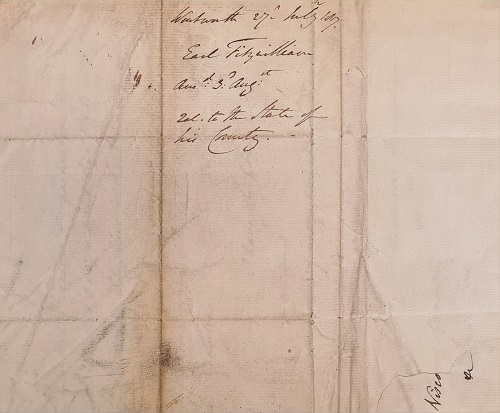 Wentworth 27th July 1817
Earl Fitzwilliam
Ansd. 3d Augst
Rel. to the State of
his County.
Visco